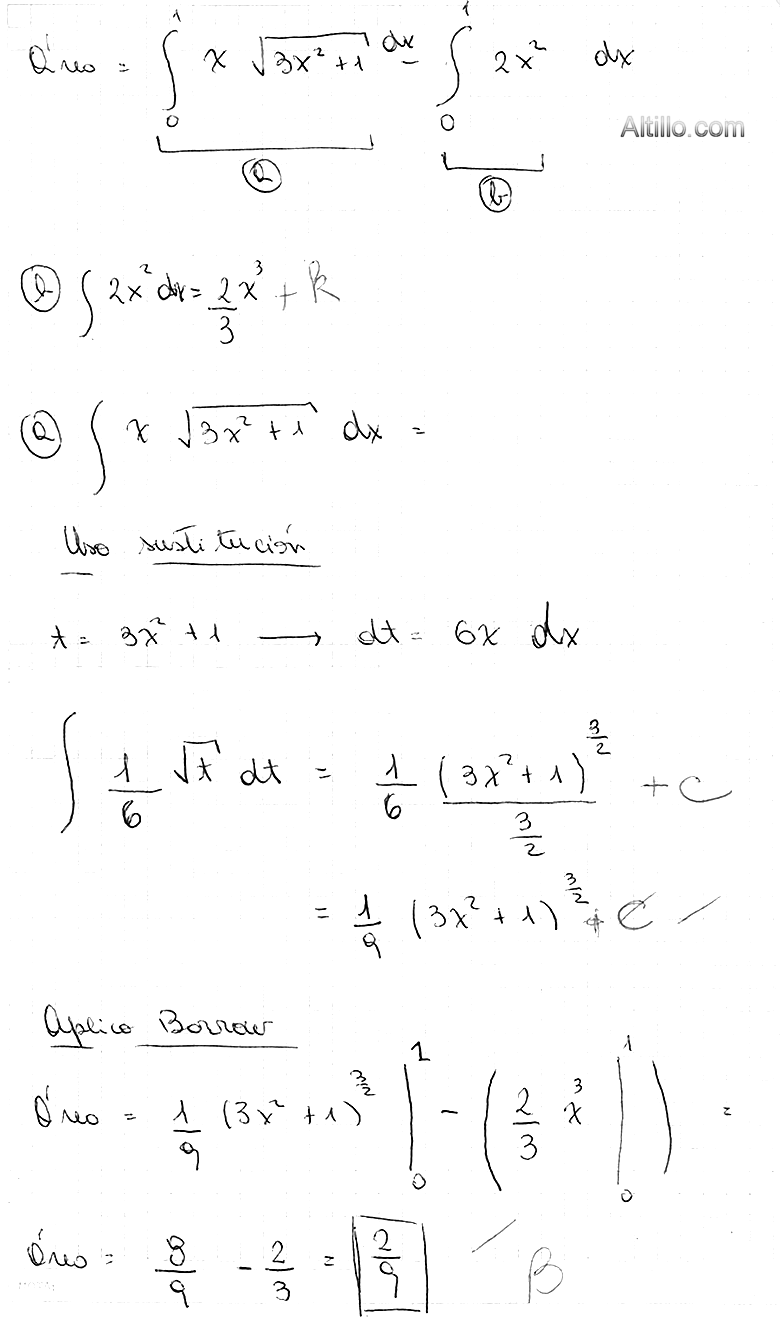 Área = ∫₀¹ x √(3x² + 1) dx - ∫₀¹ 2x² dx
Altillo.com
ⓐ ⓑ
ⓑ ∫ 2x² dx = 2/3 x³ + k
ⓐ ∫ x √(3x² + 1) dx =
Uso sustitución
t = 3x² + 1 → dt = 6x dx
∫ 1/6 √t dt = 1/6 (3x² + 1)^(3/2) / (3/2) + C
= 1/9 (3x² + 1)^(3/2) + C
Aplico Barrow
Área = 1/9 (3x² + 1)^(3/2) |₀¹ - (2/3 x³ |₀¹) =
Área = 8/9 - 2/3 = 2/9 B